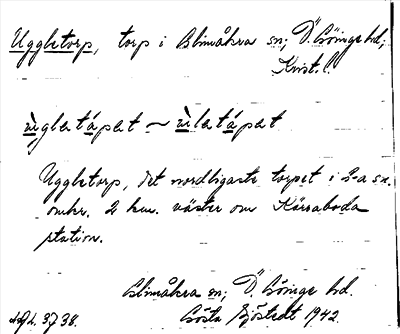 Uggletorp, torp i Glimåkra sn; Ö. Göinge hd,
Krist. l.
ùglatå̀rpat ~ ùlatå̀rpat
Uggletorp, det nordligaste torpet i s-a sn.
omkr. 2 km. väster om Kärraboda
station.
Glimåkra sn; Ö. Göinge hd.
Gösta Sjöstedt 1942.
3738.